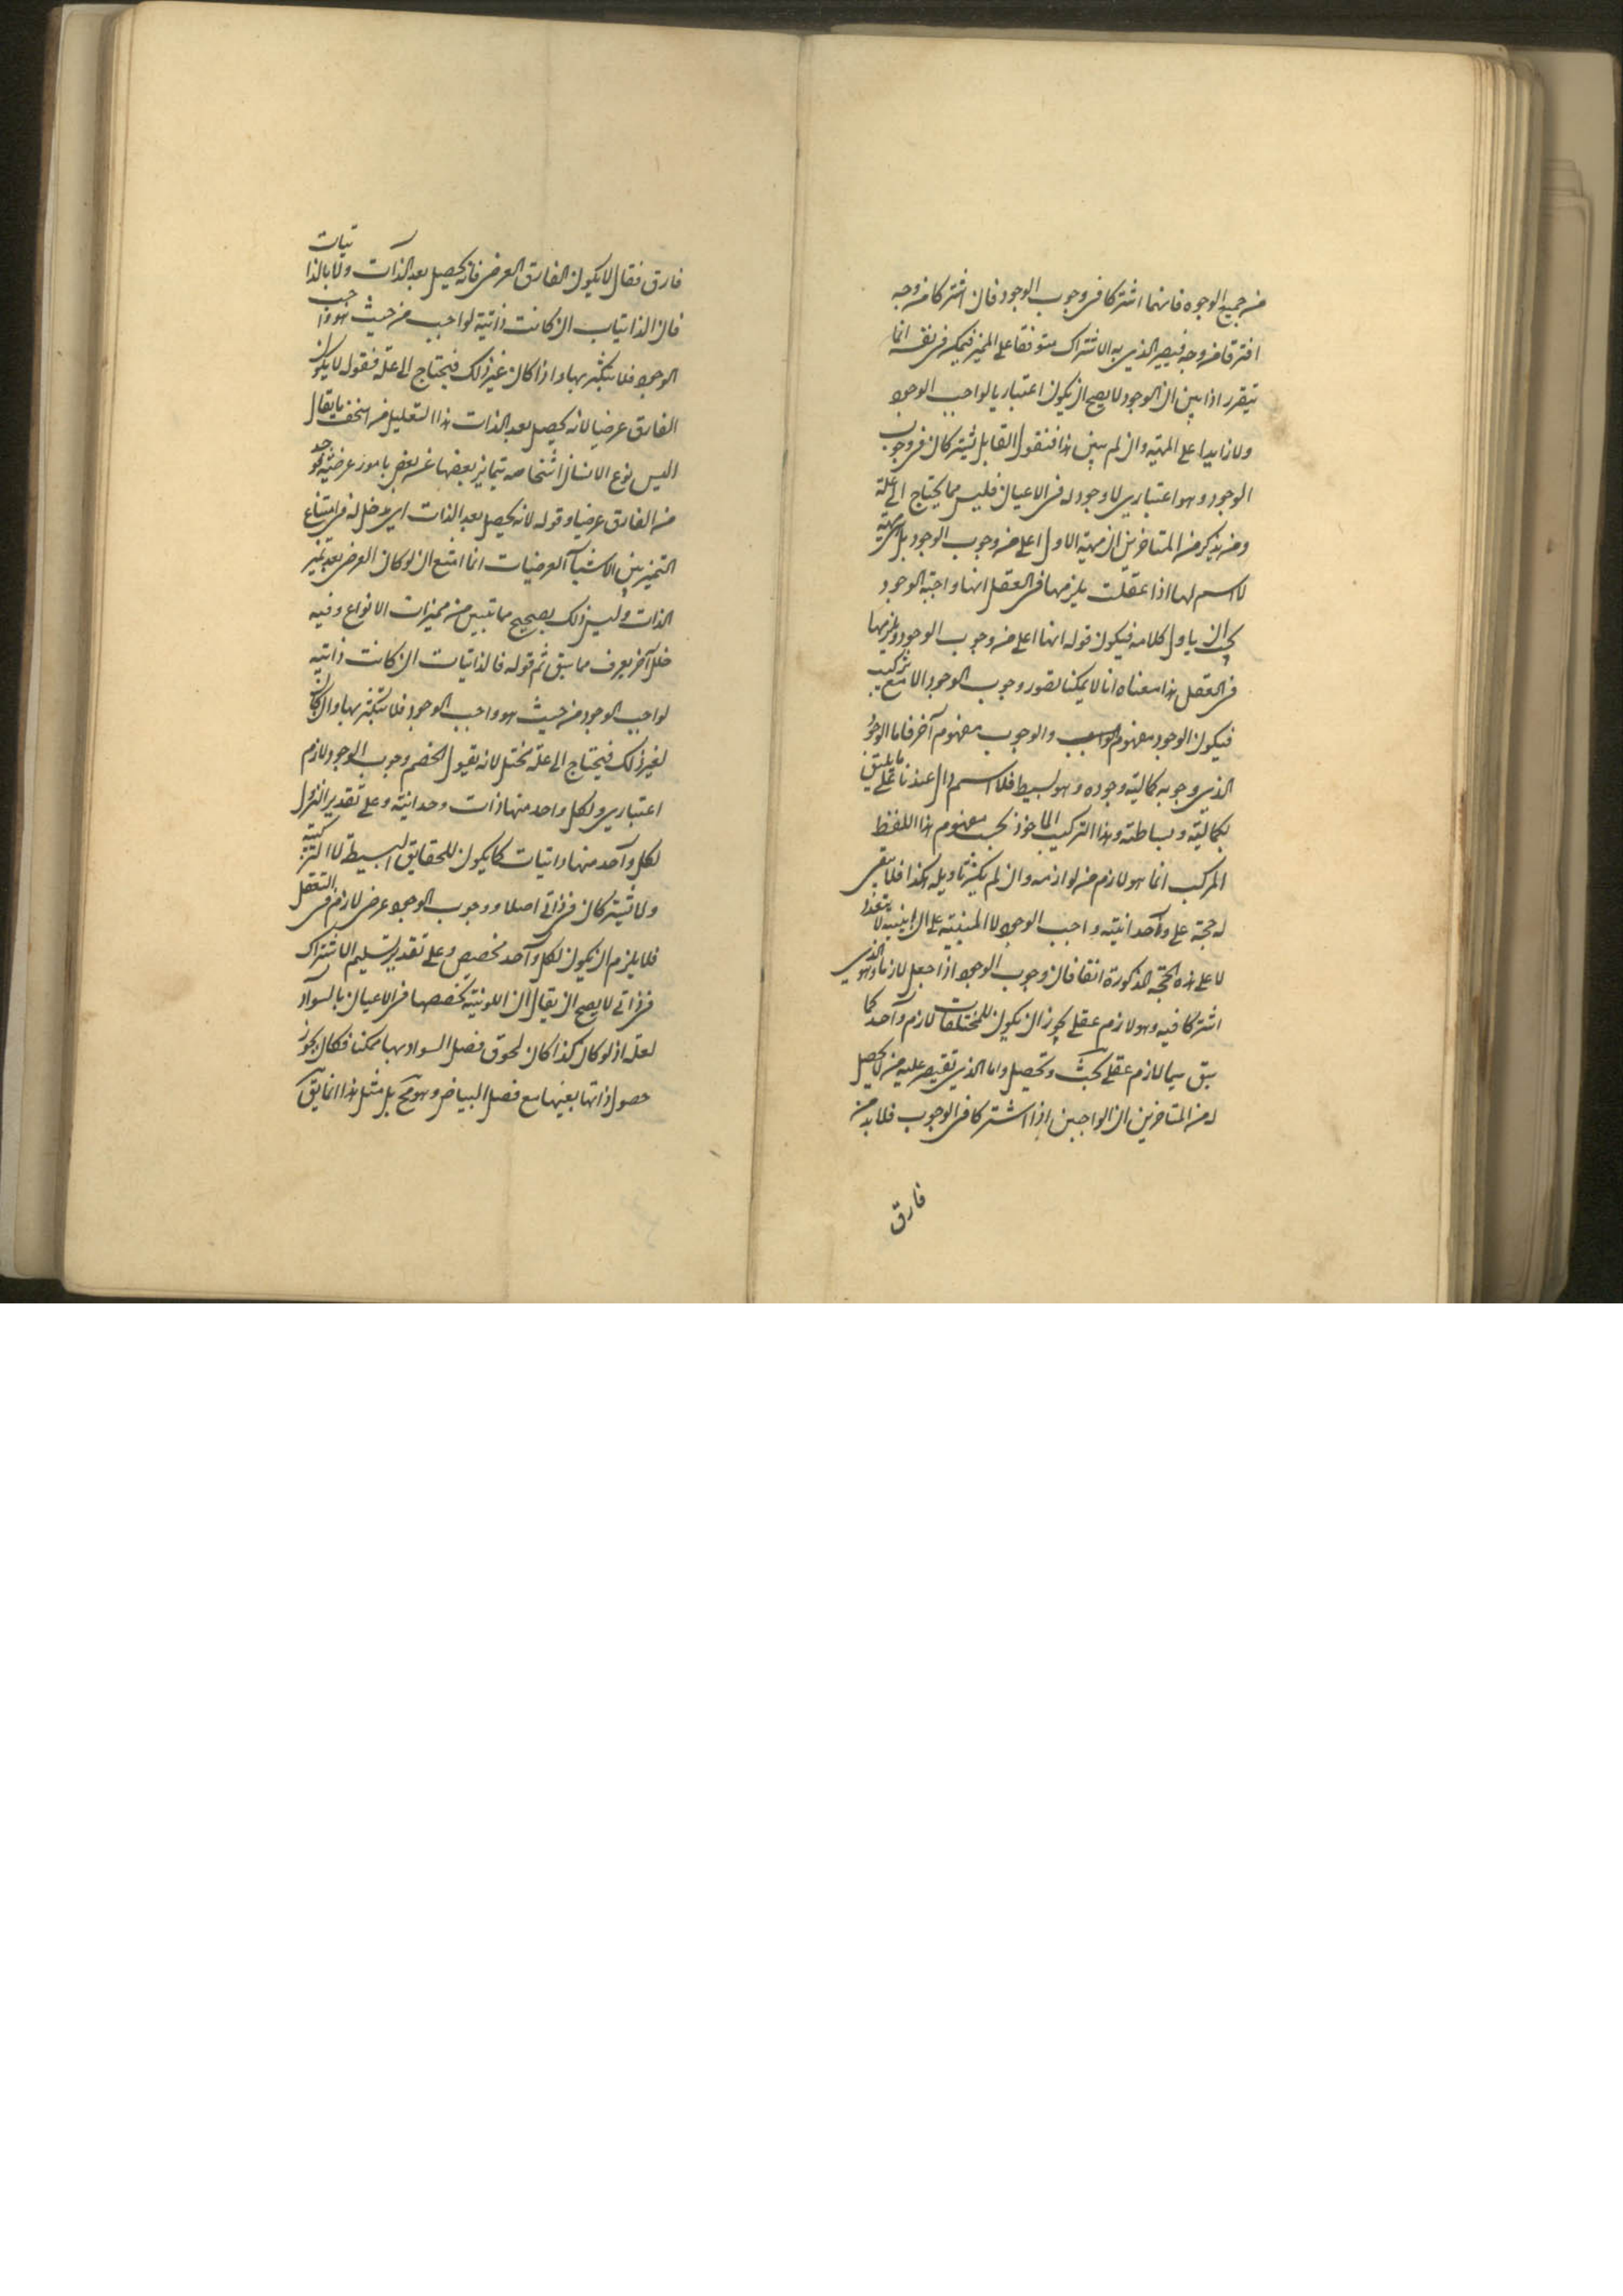 من جميع الوجوه فانهما اشتركا فى وجوب الوجود فان اشتركا من وجه
افترقا من وجه فيصير الذى به الاشتراك متوقفا على المميز فتمكنه فى نفسه انما
يتقرر اذا بين ان الوجود لا يصح ان يكون اعتباريا لواجب الوجود
ولا زايدا على المهية وان لم يبين هذا فنقول القايل يشتركان فى وجوب
الوجود وهو اعتبارى لا وجود له فى الاعيان فليس مما يحتاج الى علة
ومن يذكر من المتاخرين ان مهية الاول اعلى من وجوب الوجود بل هى مهية
لا اسم لها اذا عقلت يلزمها فى العقل انها واجبة الوجود
يجب ان ياول كلامه فيكون قوله انها اعلى من وجوب الوجود ويلزمها
فى العقل هذا معناه انا لا يمكننا تصور وجوب الوجود الا مع تركيب
فيكون الوجود مفهوم والوجوب مفهوم آخر فاما الوجود
الذى وجوبه كمالية وجوده وهو بسيط فلا اسم دال عندنا على ما يليق
بكماليته وبساطته وهذا التركيب الماخوذ بحسب مفهوم هذا اللفظ
المركب انما هو لازم من لوازمه وان لم يكن تاويله هكذا فلا يبقى
له حجة على وحدانية واجب الوجود لا المبنية على ان لا يتعدد
لا على هذه الحجة المذكورة انفا فان وجوب الوجود اذا جعل لازما وهو الذى
اشتركا فيه وهو لازم عقلى يجوز ان يكون للمختلفات لازم واحد كما
سبق سيما لازم عقلى بحت وتحصيل واما الذى تقتصر عليه من لا تحصيل
له من المتاخرين ان الواجبين اذا اشتركا فى الوجوب فلا بد من
فارق
فارق فقال لا يكون الفارق العرضى فانه يحصل بعد الذات ولا بالذاتيات
فان الذاتيات ان كانت ذاتية لواجب من حيث هو واجب
الوجود فلا يتكثر بها واذا كان غير ذلك فيحتاج الى علة فنقول لا يكون
الفارق عرضيا لانه يحصل بعد الذات هذا التعليل من اسخف ما يقال
اليس نوع الانسان اشخاصه يتمايز بعضها عن بعض بامور عرضية
من الفارق عرضيا وقوله لانه يحصل بعد الذات اى مدخل له فى امتناع
التميز بين الاشياء العرضيات انما امتنع ان لو كان العرض بعد تميز
الذات وليس ذلك بصحيح مما تبين من مميزات الانواع وفيه
خلل آخر يعرف مما سبق ثم قوله فالذاتيات ان كانت ذاتية
لواجب الوجود من حيث هو واجب الوجود فلا يتكثر بها وان كان
لغير ذلك فيحتاج الى علة مختل لانه يقول الخصم وجوب الوجود لازم
اعتبارى ولكل واحد منها ذات وحدانية وعلى تقدير النزول
لكل واحد منها ذاتيات كما يكون للحقايق البسيطة لا التركيبة
ولا يشتركان فى ذاتى اصلا ووجوب الوجود عرضى لازم فى التعقل
فلا يلزم ان يكون لكل واحد مخصص وعلى تقدير تسليم الاشتراك
فى ذاتى لا يصح ان يقال ان اللونية تخصصها فى الاعيان بالسواد
لعلة اذ لو كان كذا كان لحوق فصل السواد بها ممكنا فكان يجوز
حصول ذاتها بعينها مع فصل البياض وهو مح بل مثل هذا انما يق